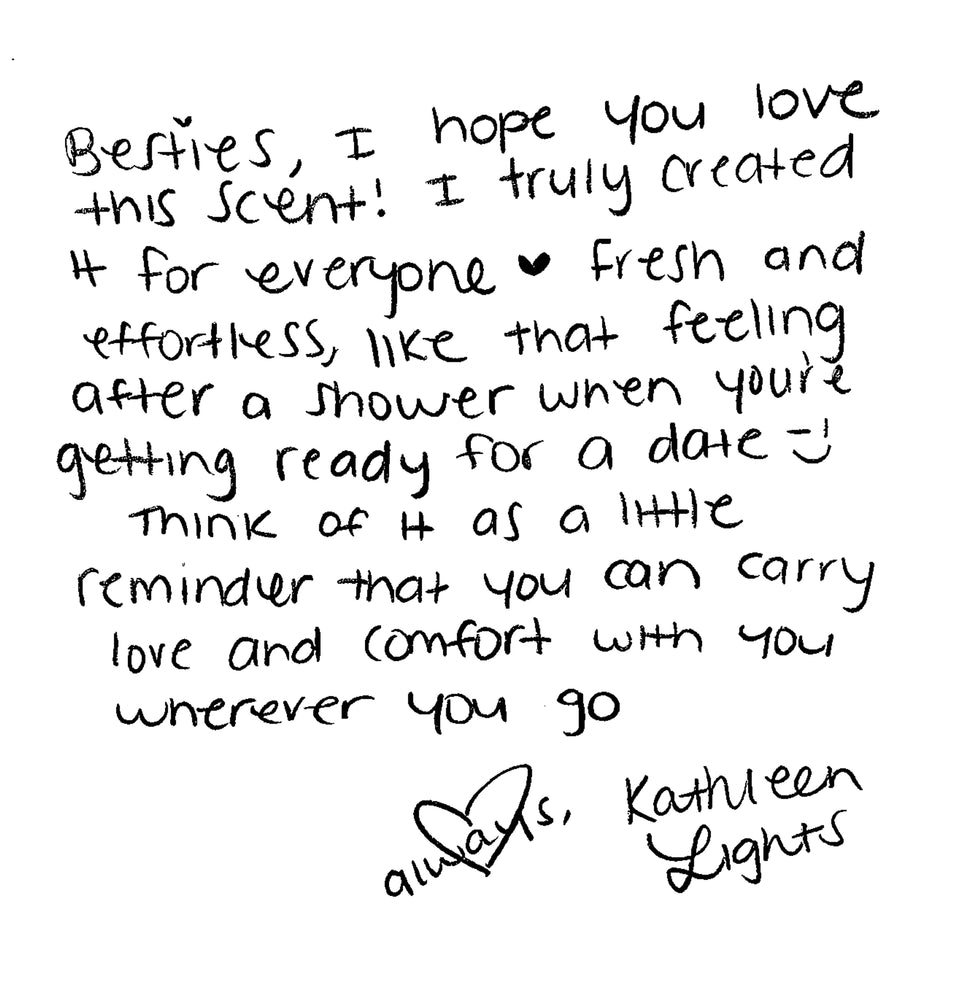 Besties, I hope you love
this scent! I truly created
it for everyone ♥ Fresh and
effortless, like that feeling
after a shower when you're
getting ready for a date :)
Think of it as a little
reminder that you can carry
love and comfort with you
wherever you go
always, Kathleen
Lights